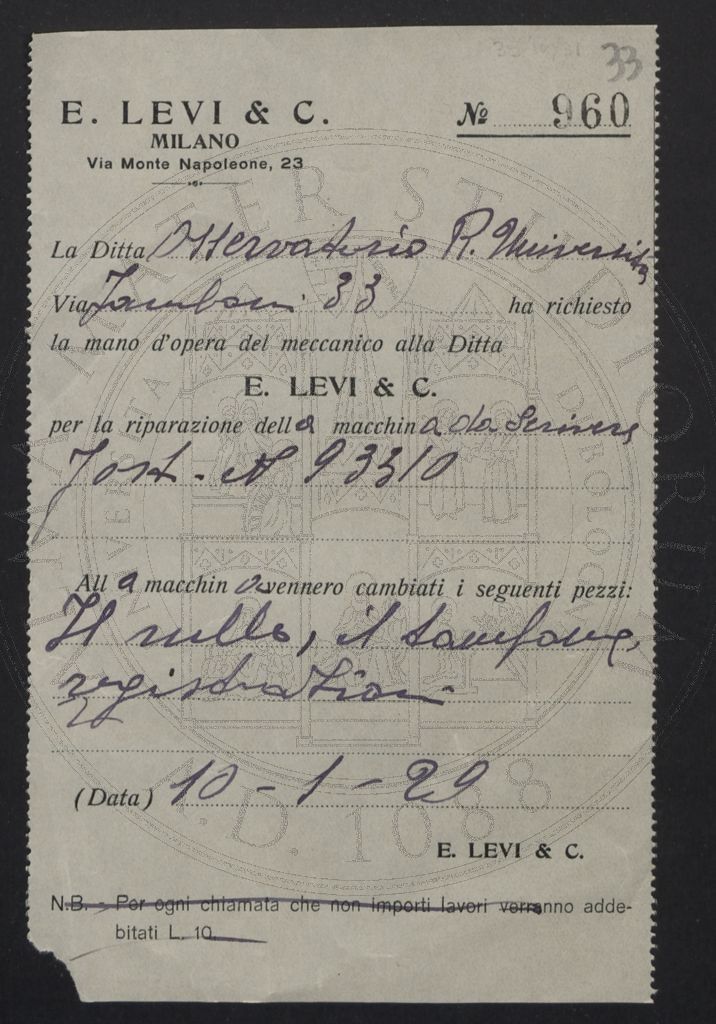 33
E. LEVI & C.
No 960
MILANO
Via Monte Napoleone, 23
La Ditta Osservatorio R. Università
Via Zamboni 33 ha richiesto
la mano d'opera del meccanico alla Ditta
E. LEVI & C.
per la riparazione della macchina da scrivere
Jost - N 93310
Alla macchina vennero cambiati i seguenti pezzi:
Il rullo, il tampone,
registrazioni
(Data) 10-1-29
E. LEVI & C.
N.B. - Per ogni chiamata che non importi lavori verranno adde-
bitati L. 10
ALMA MATER STUDIORUM
A.D. 1088